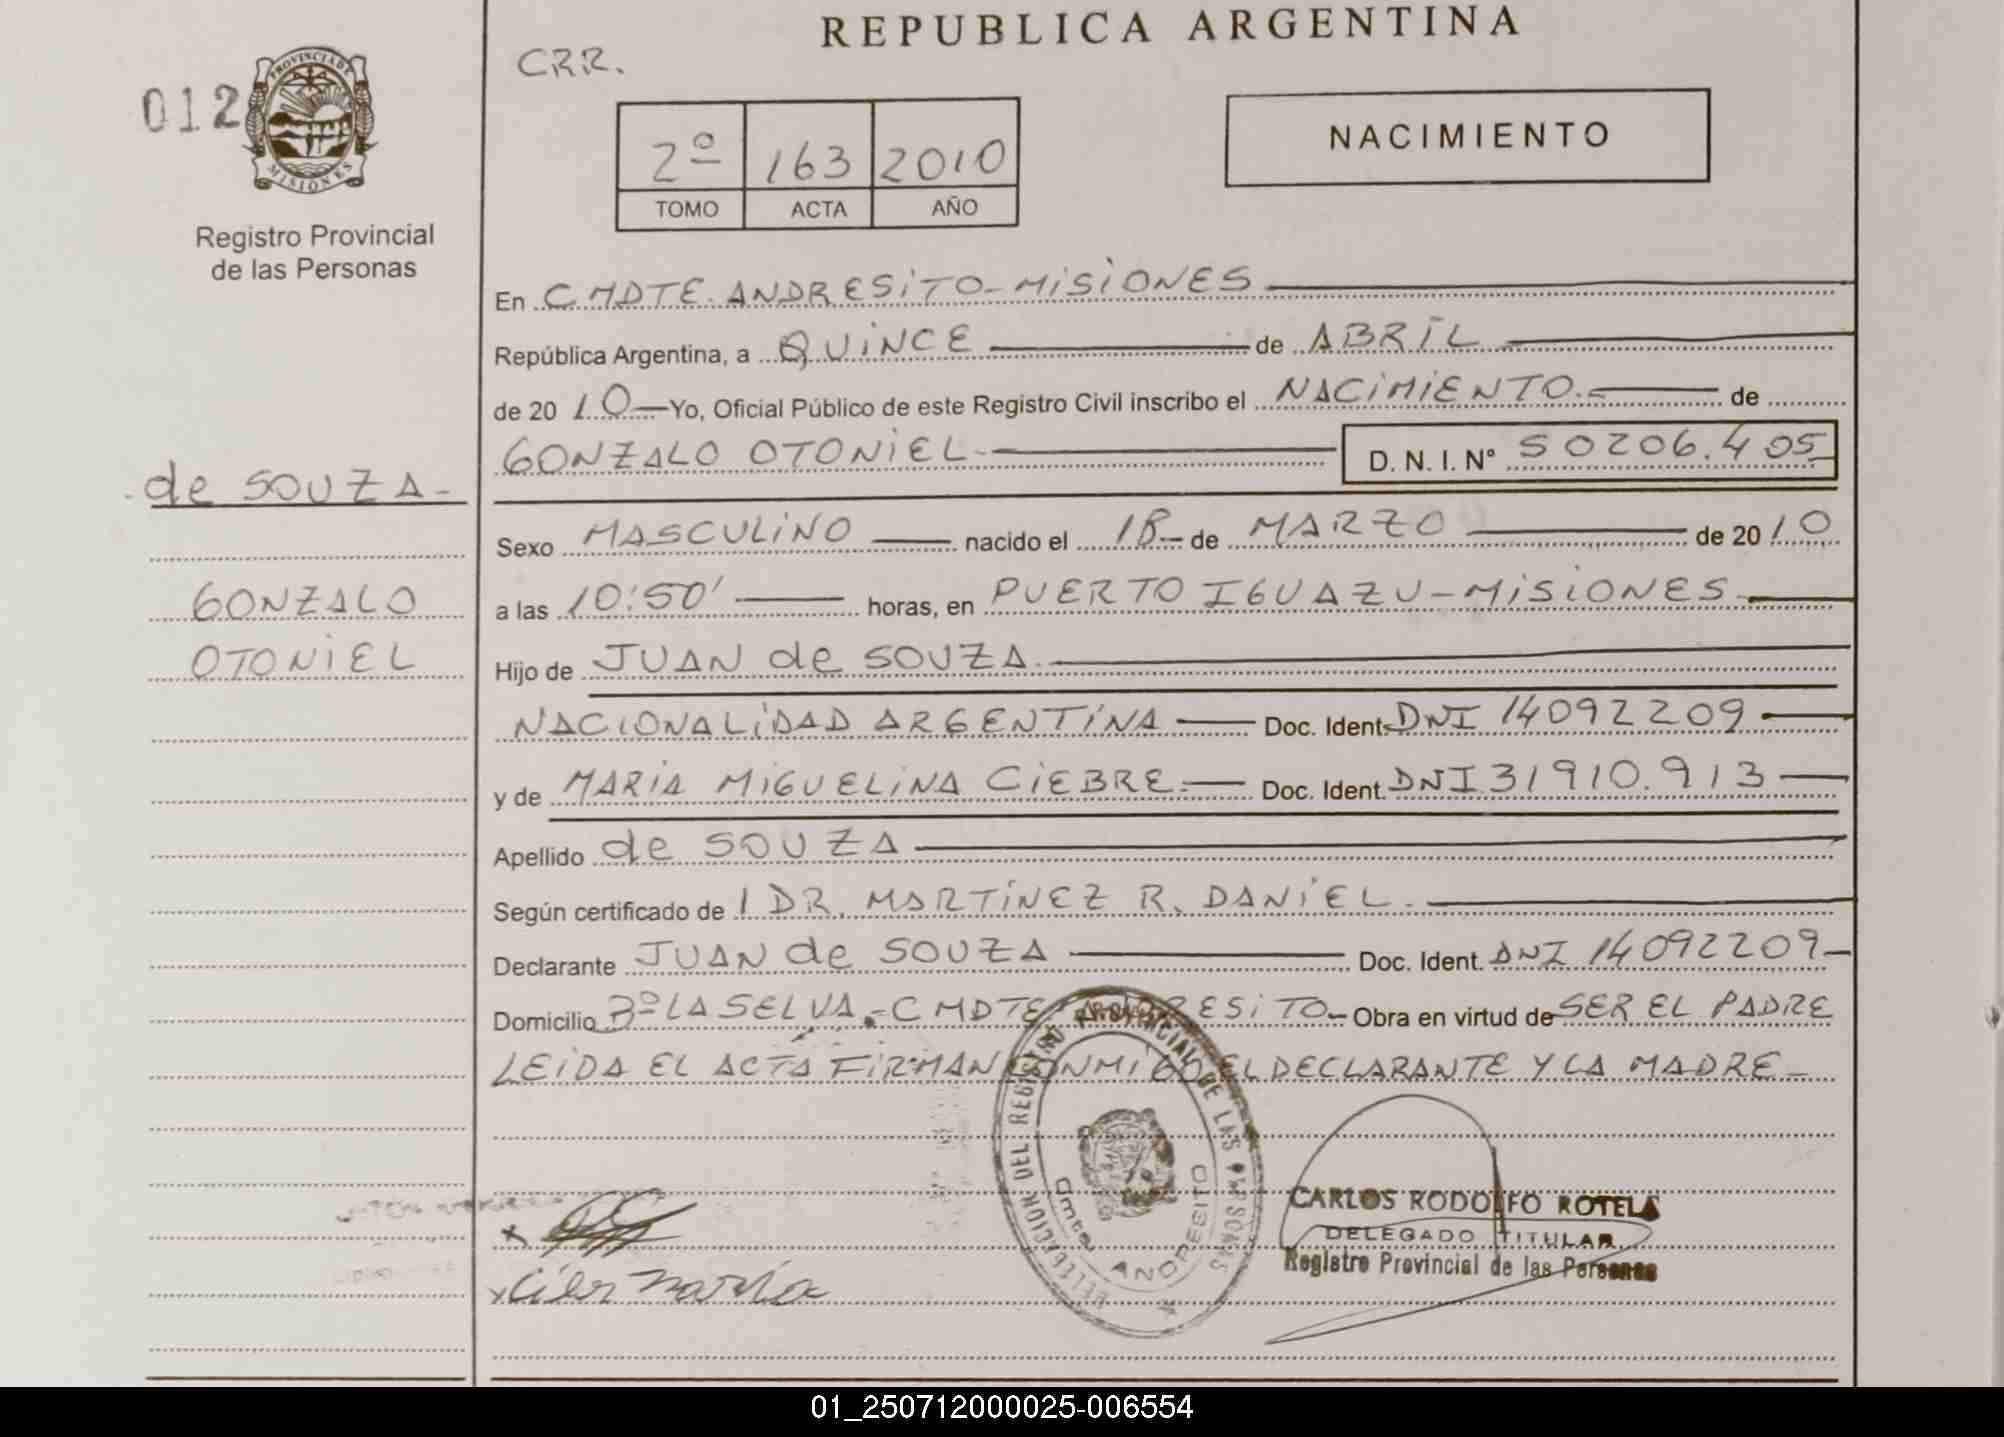 REPUBLICA ARGENTINA
CRR.
012
PROVINCIA DE
MISIONES
Registro Provincial
de las Personas
2º 163 2010
TOMO ACTA AÑO
NACIMIENTO
En CMDTE. ANDRESITO-MISIONES
República Argentina, a QUINCE de ABRIL
de 20 10 Yo, Oficial Público de este Registro Civil inscribo el NACIMIENTO.- de
GONZALO OTONIEL- D. N. I. Nº 50206.405
de SOUZA-
GONZALO
OTONIEL
Sexo MASCULINO nacido el 18- de MARZO de 20 10
a las 10:50' horas, en PUERTO IGUAZU-MISIONES
Hijo de JUAN de SOUZA.
NACIONALIDAD ARGENTINA Doc. Ident. DNI 14092209
y de MARIA MIGUELINA CIEBRE.- Doc. Ident. DNI 31910.913
Apellido de SOUZA
Según certificado de 1 DR. MARTINEZ R. DANIEL.
Declarante JUAN de SOUZA Doc. Ident. DNI 14092209-
Domicilio Bº LA SELVA.-CMDTE ANDRESITO- Obra en virtud de SER EL PADRE
LEIDA EL ACTA FIRMAN CONMIGO EL DECLARANTE Y LA MADRE-
DELEGACION DEL REGISTRO PROVINCIAL DE LAS PERSONAS
Cmte. ANDRESITO
CARLOS RODOLFO ROTELA
DELEGADO TITULAR
Registro Provincial de las Personas
x
x maria
01_250712000025-006554